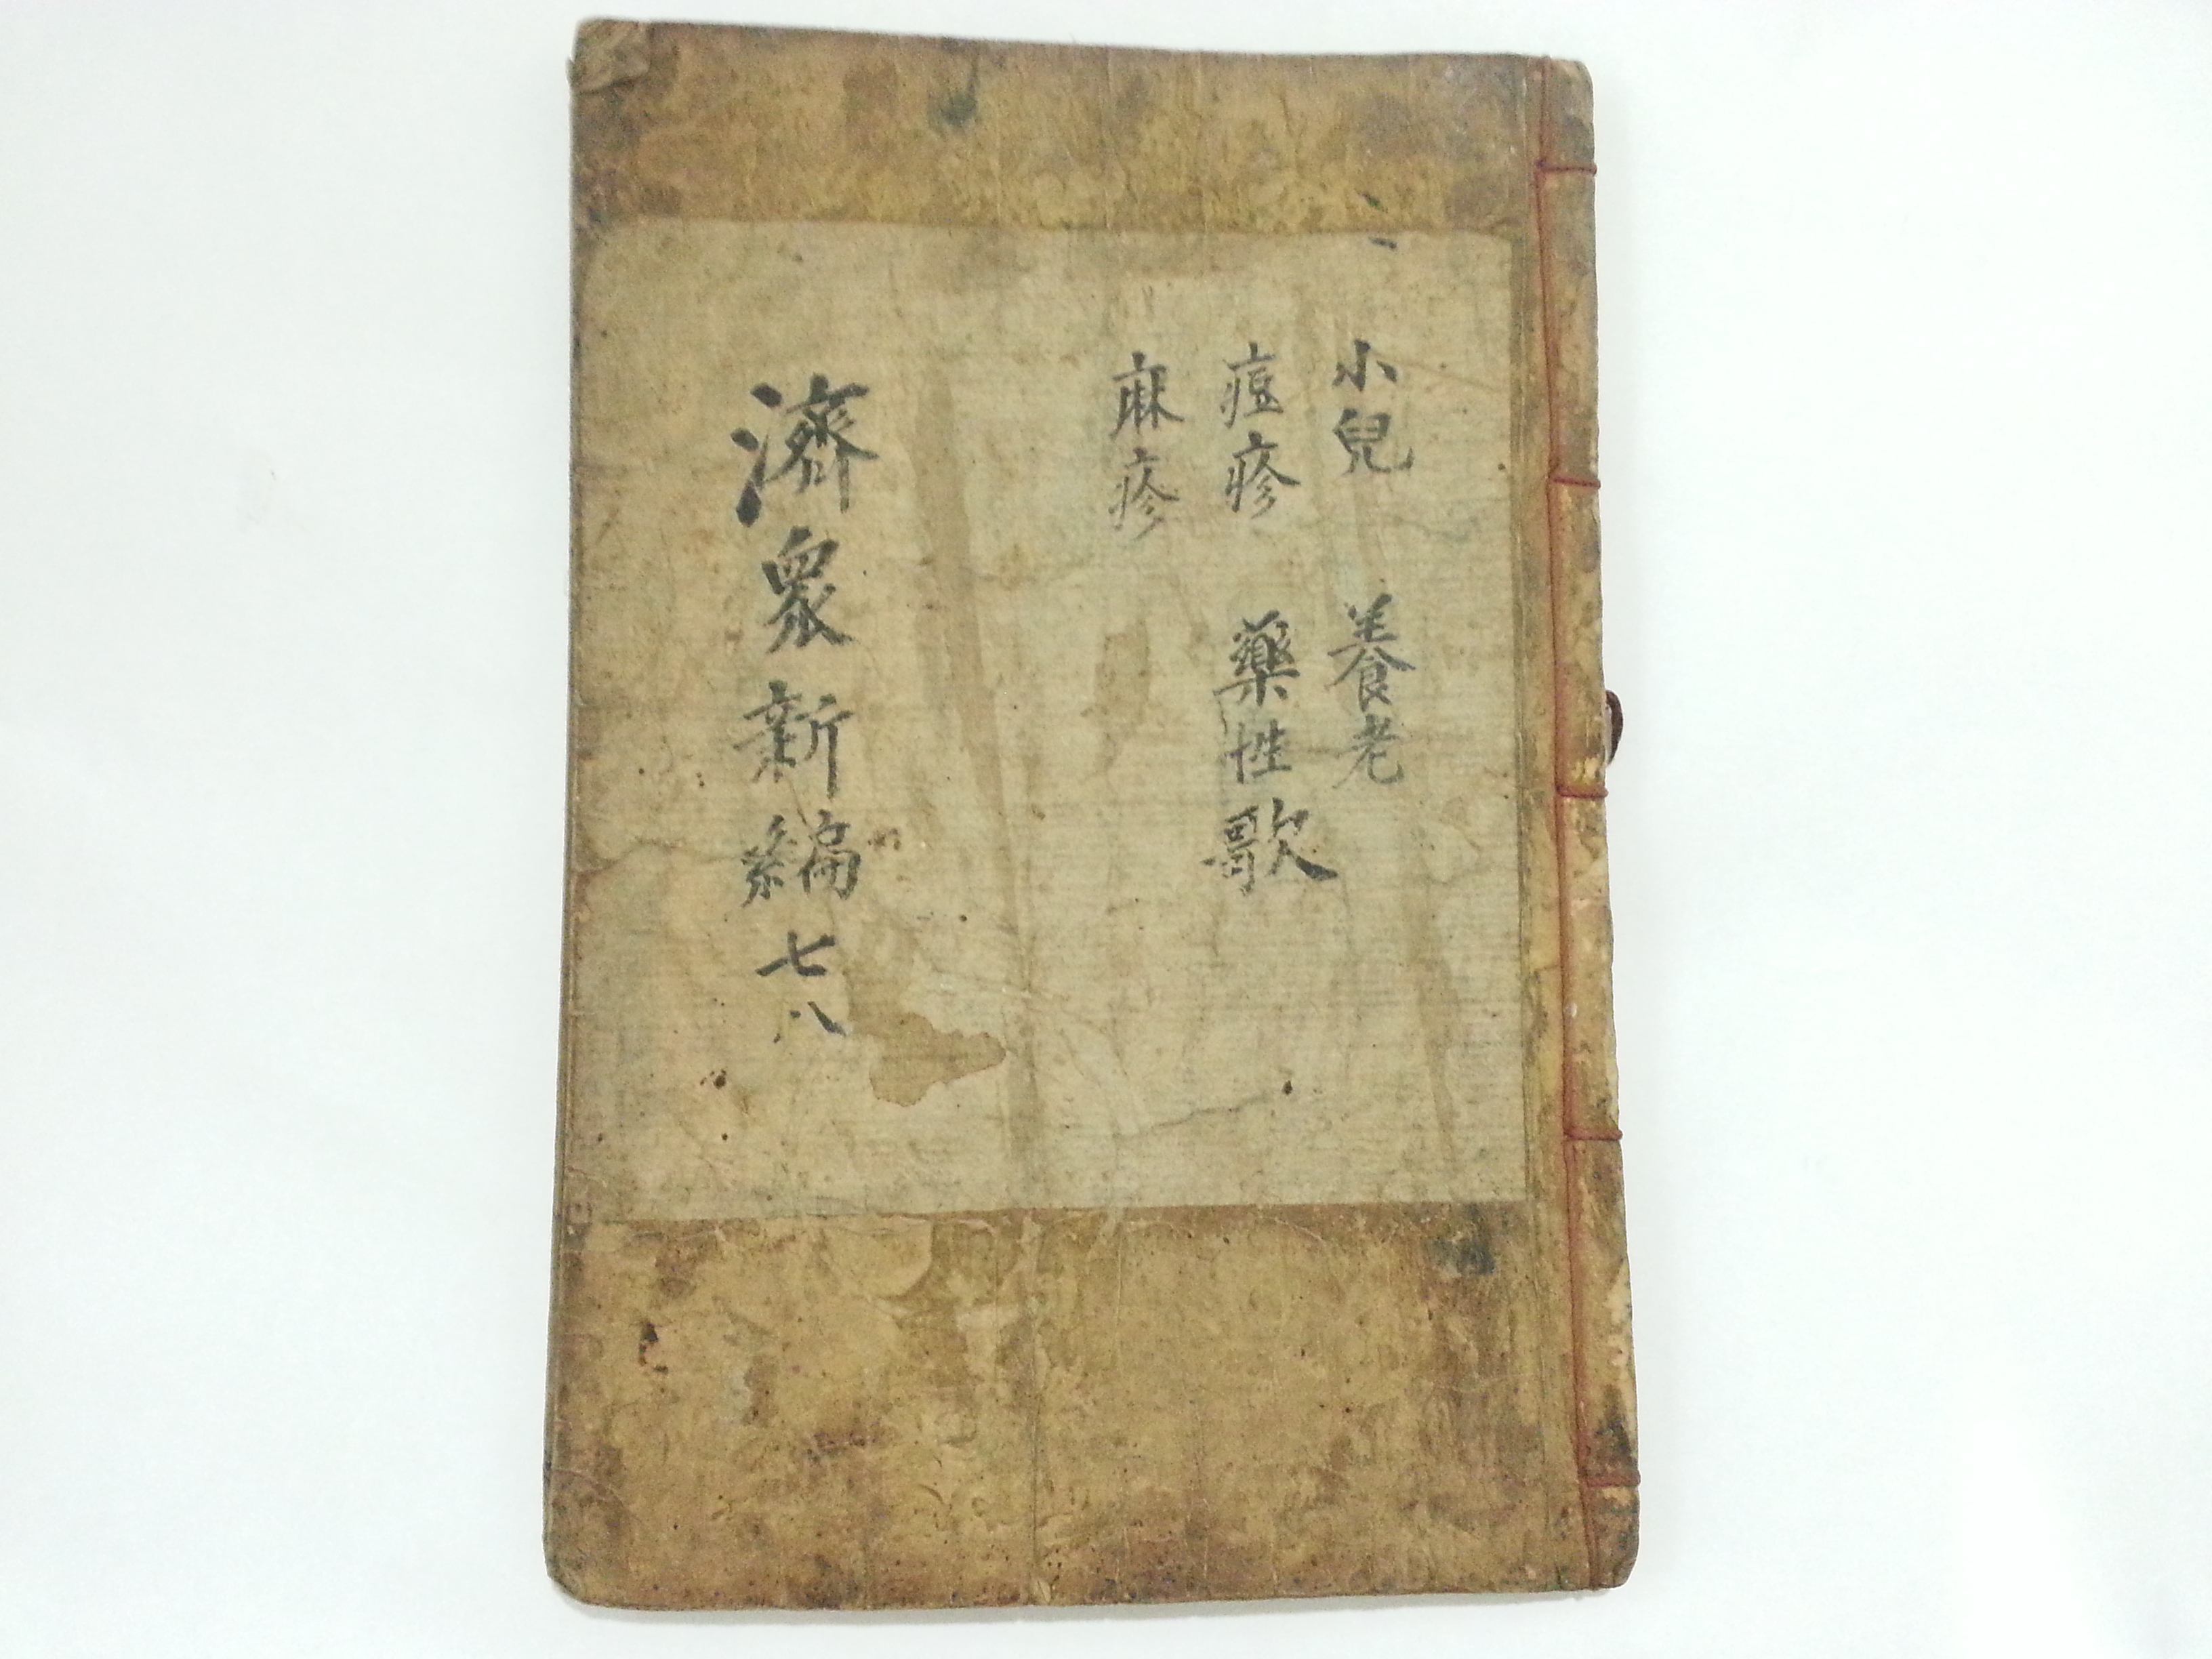 小兒 養老
痘疹 藥性歌
麻疹
濟衆新編 七八